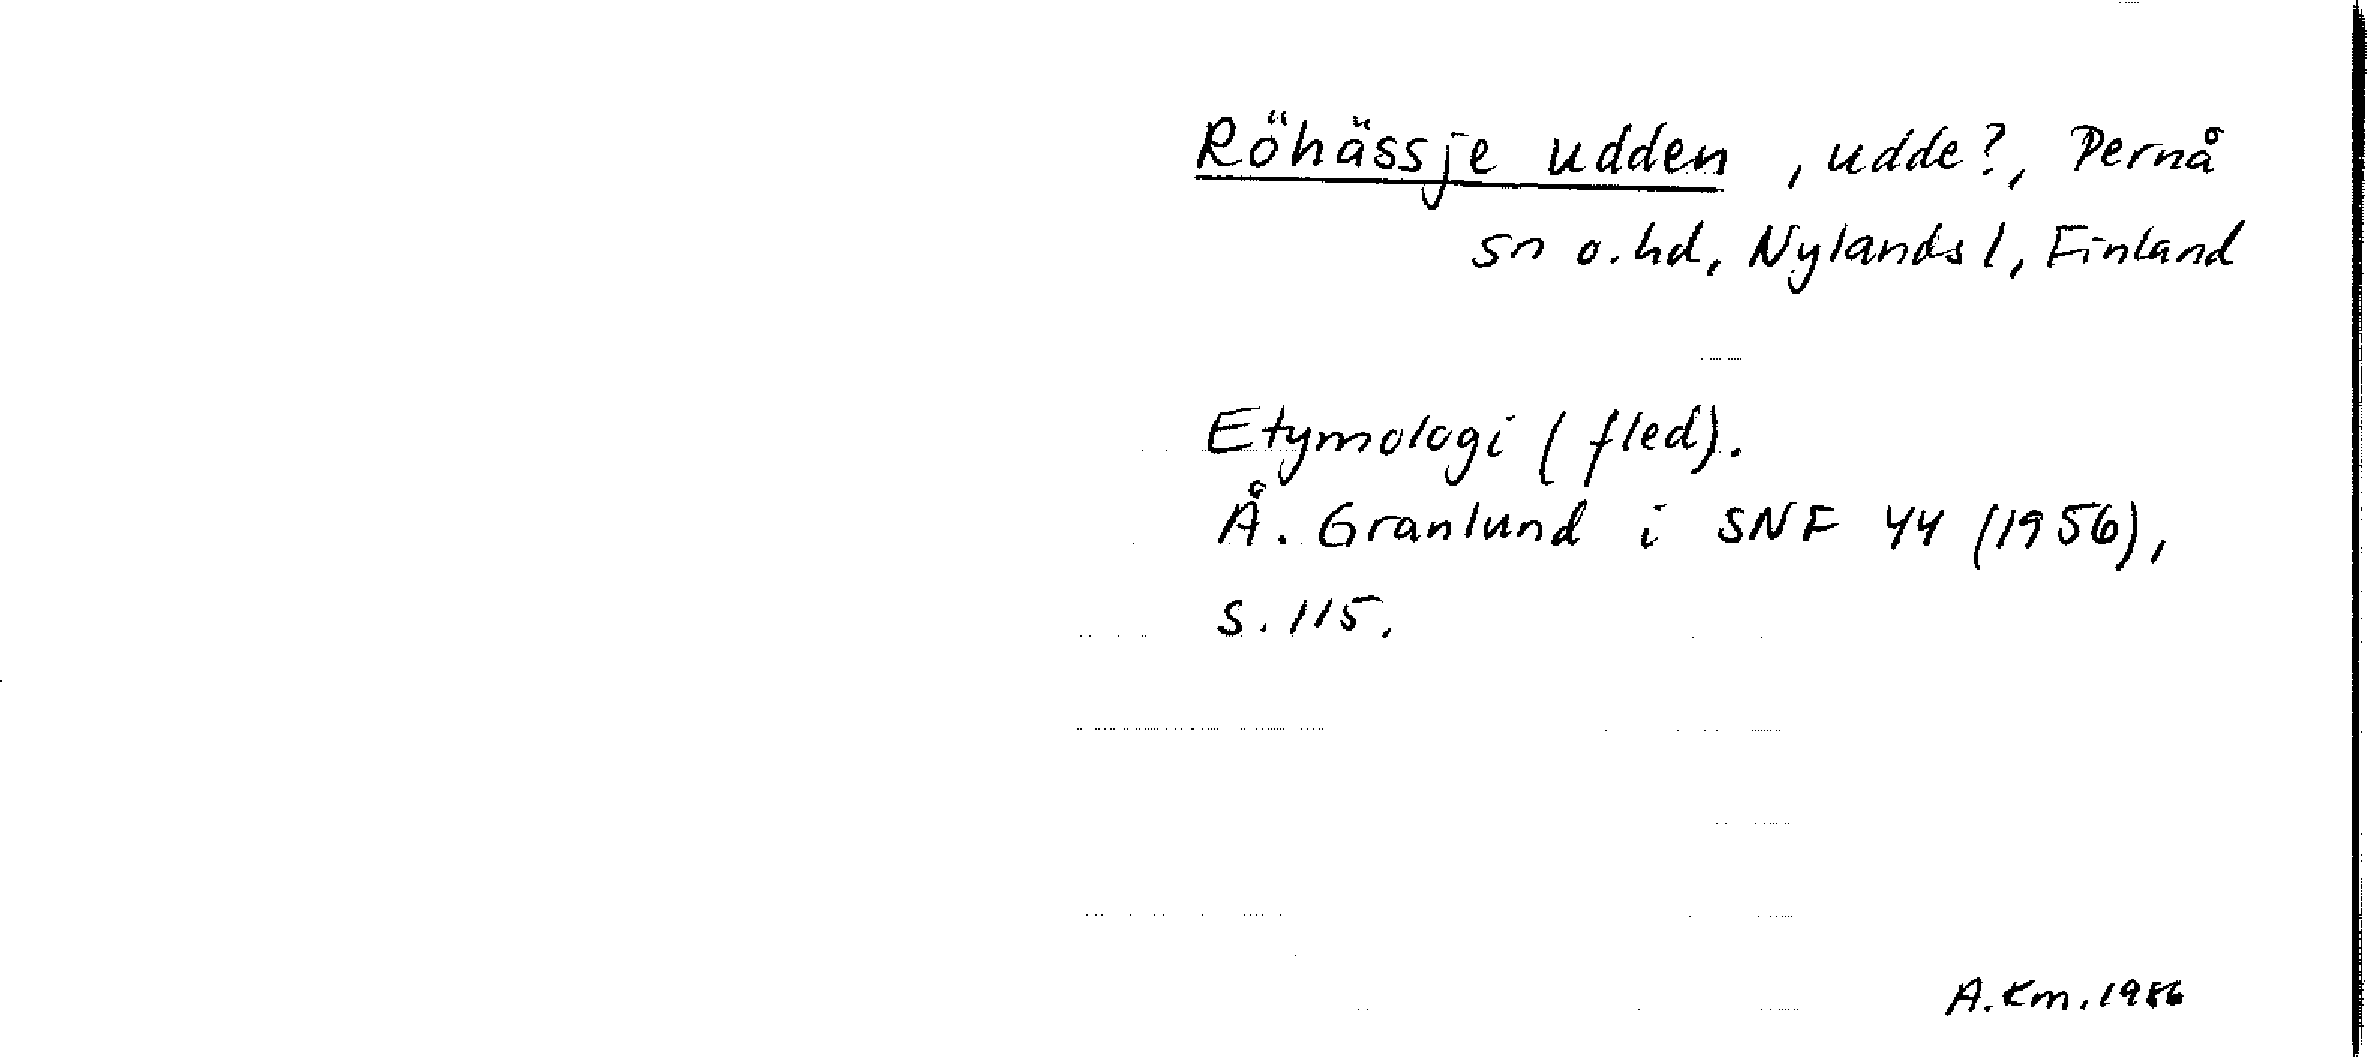 Röhässje udden, udde?, Pernå
sn o. hd, Nylands l, Finland
Etymologi (fled).
Å. Granlund i SNF 44 (1956),
s. 115.
A.Km. 1986